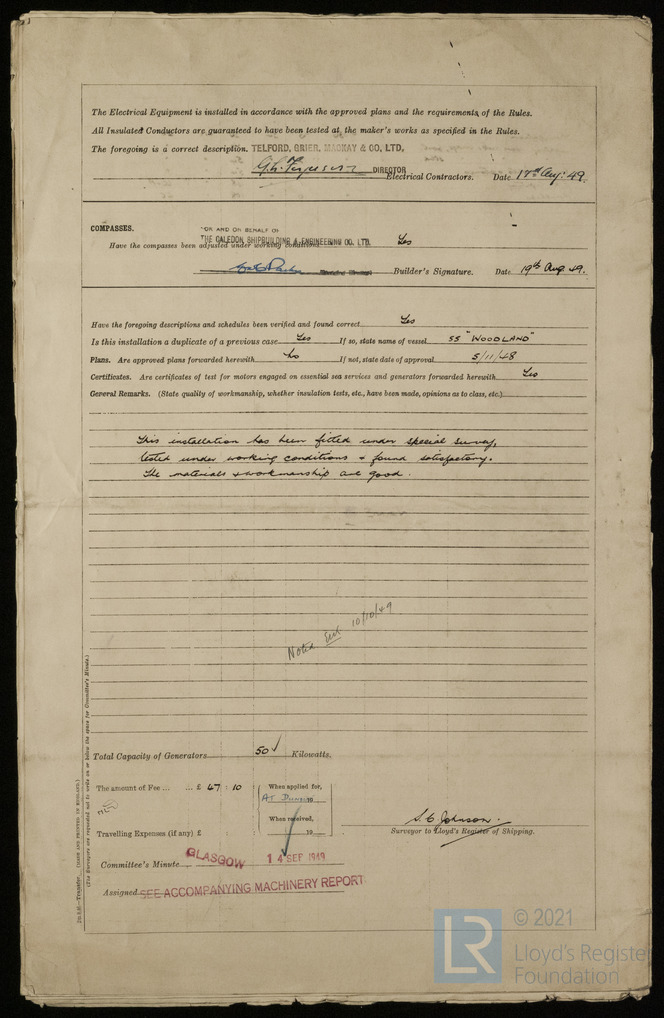 The Electrical Equipment is installed in accordance with the approved plans and the requirements of the Rules.
All Insulated Conductors are guaranteed to have been tested at the maker's works as specified in the Rules.
The foregoing is a correct description. TELFORD, GRIER, MACKAY & CO, LTD,
DIRECTOR
Electrical Contractors. Date 17th Aug: 49.
COMPASSES.
FOR AND ON BEHALF OF
THE CALEDON SHIPBUILDING & ENGINEERING CO. LTD.
Have the compasses been adjusted under working conditions Yes
Builder's Signature. Date 19th Aug. 49.
Have the foregoing descriptions and schedules been verified and found correct Yes
Is this installation a duplicate of a previous case Yes If so, state name of vessel SS "WOODLAND"
Plans. Are approved plans forwarded herewith No If not, state date of approval 5/11/48
Certificates. Are certificates of test for motors engaged on essential sea services and generators forwarded herewith Yes
General Remarks. (State quality of workmanship, whether insulation tests, etc., have been made, opinions as to class, etc.)
This installation has been fitted under special survey,
tested under working conditions & found satisfactory.
The materials & workmanship are good.
Noted 10/10/49
Total Capacity of Generators 50 Kilowatts.
The amount of Fee ... ... £ 47 : 10 When applied for,
19
When received,
Travelling Expenses (if any) £ 19
S. C. Johnson.
Surveyor to Lloyd's Register of Shipping.
Committee's Minute GLASGOW 14 SEP 1949
Assigned SEE ACCOMPANYING MACHINERY REPORT
(MADE AND PRINTED IN ENGLAND.)
(The Surveyors are requested not to write on or below the space for Committee's Minute.)
© 2021
LR
Lloyd's Register
Foundation